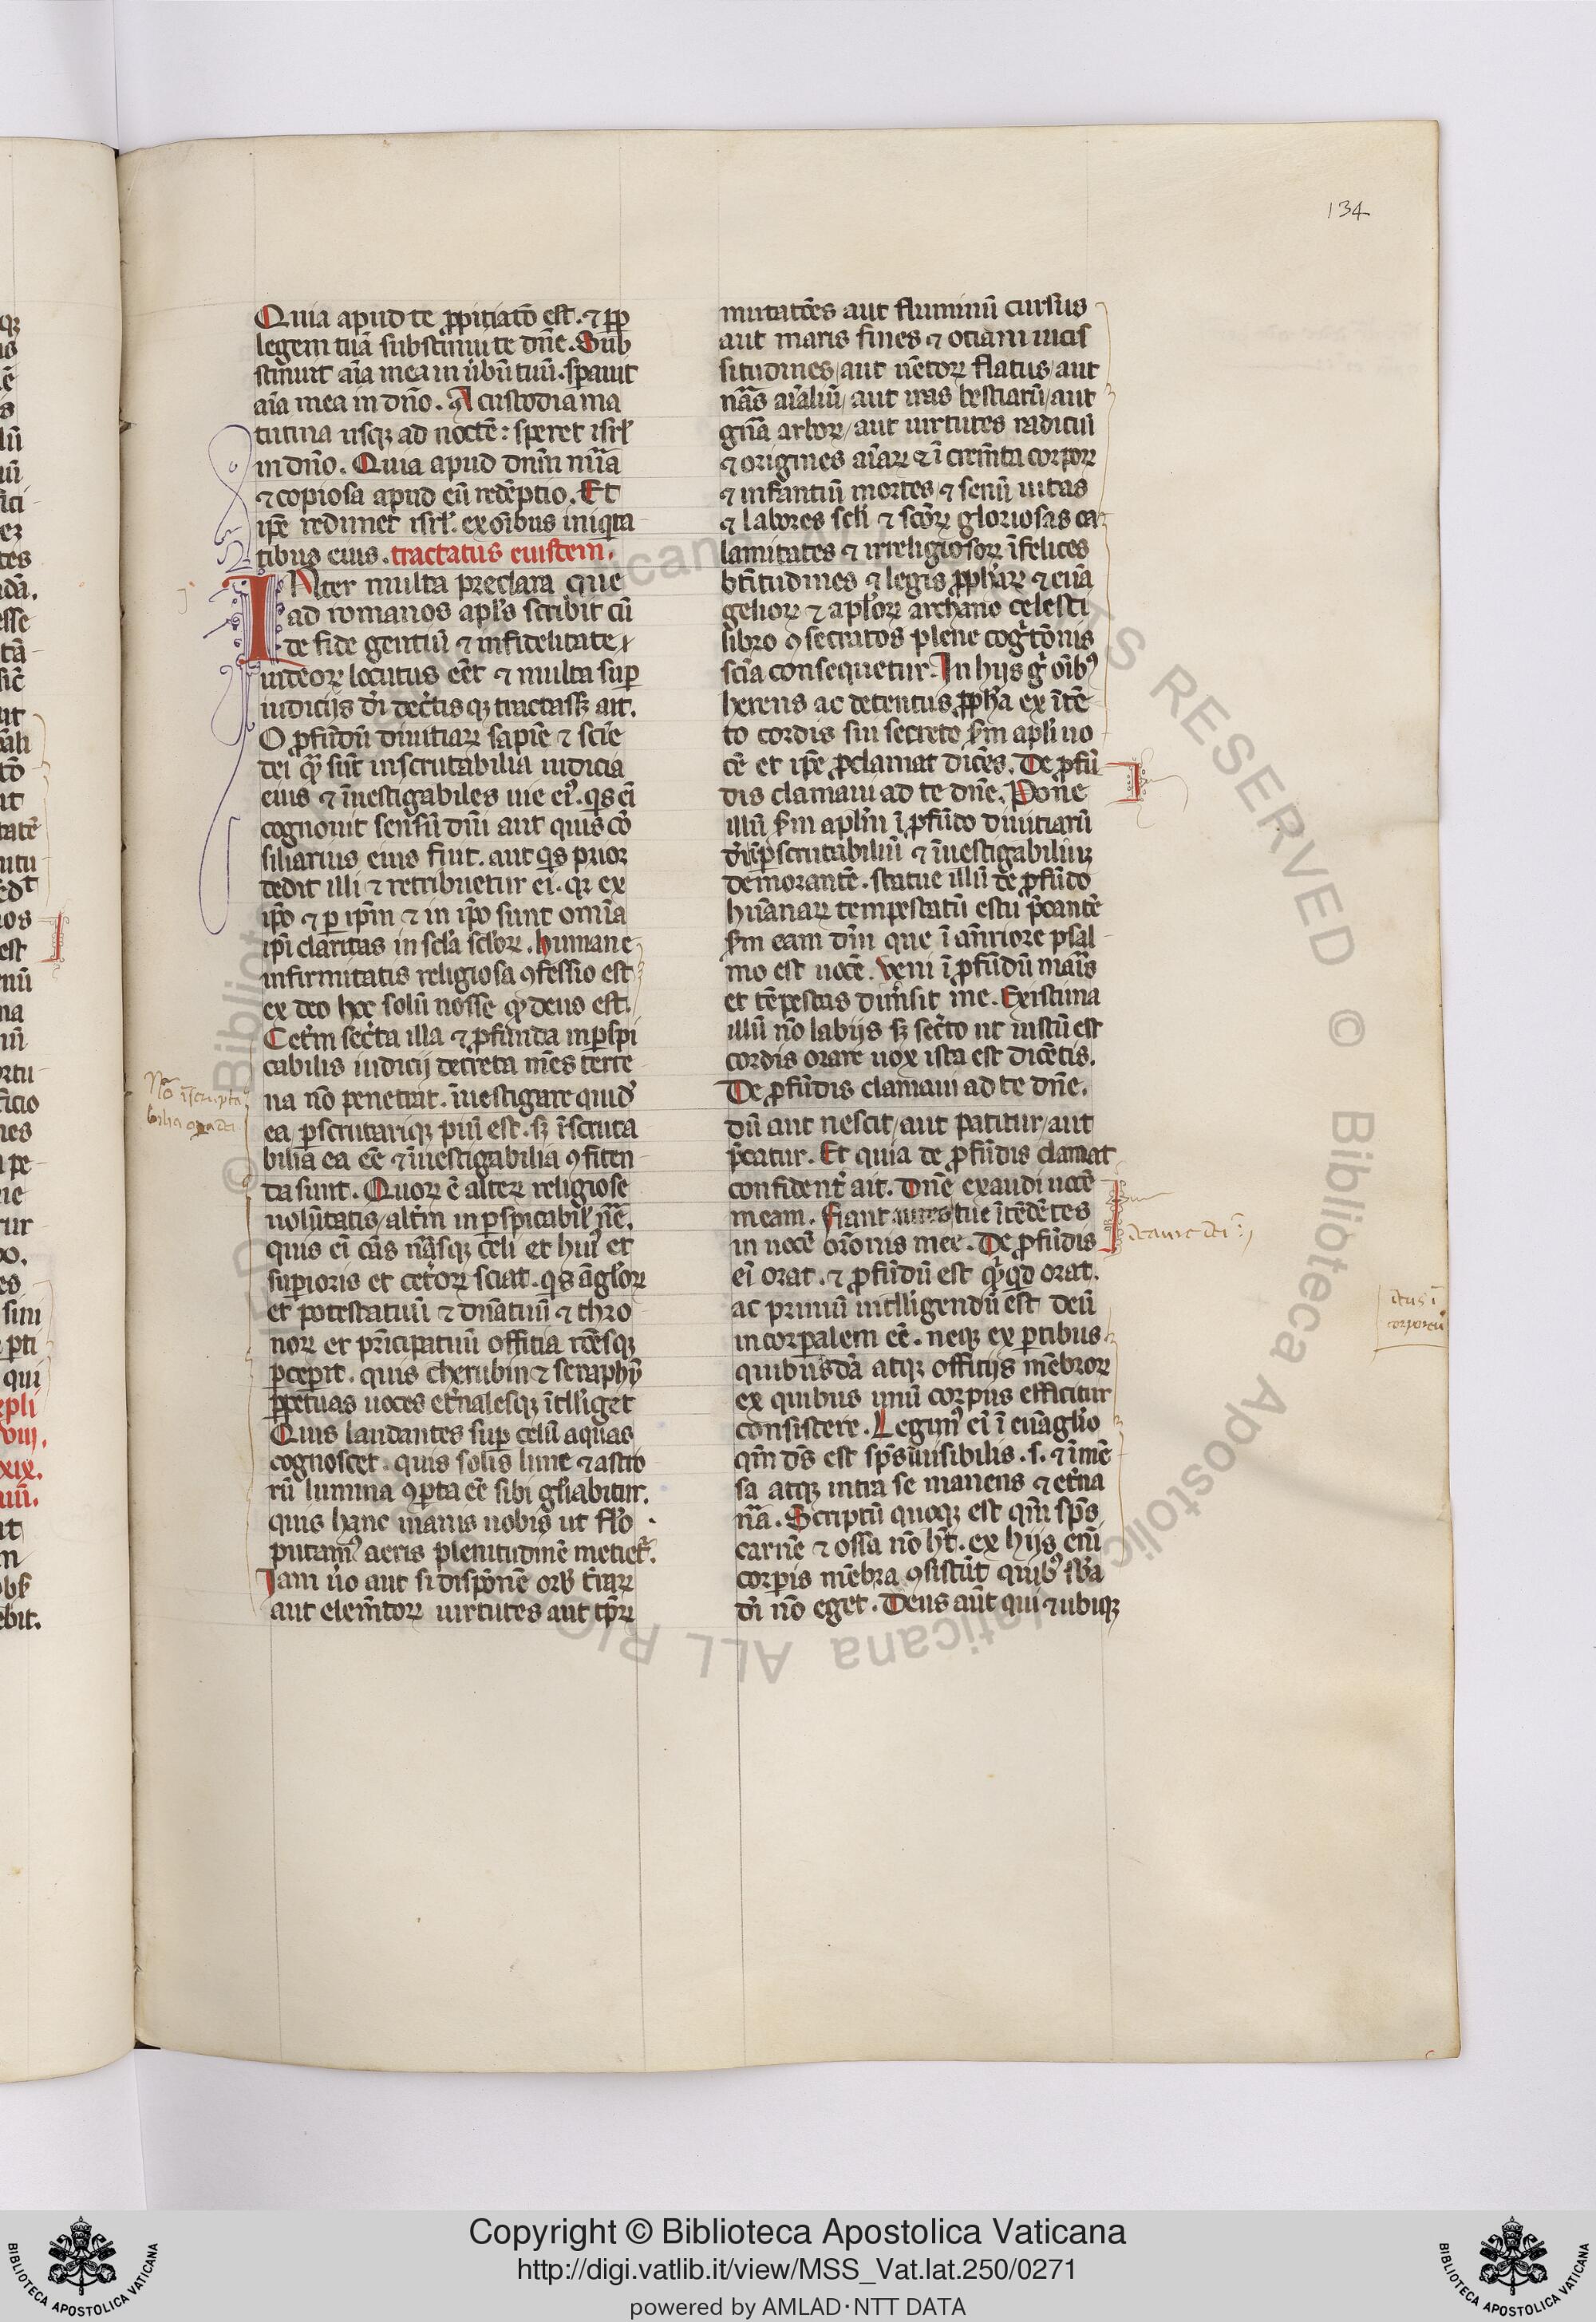 134
Quia apud te ꝓpitiatõ est. ⁊ ꝓp
legem tuã sustinui te dñe. Sub
stinuit aĩa mea in ũbũ tuũ. sꝑauit
aĩa mea in dño. A custodia ma
tutina usqꝫ ad noctẽ: speret isrł
in dño. Quia apud dnm̃ mĩa
⁊ copiosa apud eũ redẽptio. Et
ipẽ redimet isrł. ex oĩbus iniqͥta
tibus eius. tractatus eiusdem.
INter multa preclara que
ad romanos apłs scribit cũ
de fide gentiũ ⁊ infidelitate
iudeoꝝ locutus eẽt ⁊ multa suꝑ
iudicijs dĩ dec̃tisqꝫ tractassꝫ ait.
O ꝓfũdũ diuitiaꝝ sapiẽ ⁊ sciẽ
dei qͣꝫ sũt inscrutabilia iudicia
eius ⁊ ĩuestigabiles uie eiꝰ. qͥs eĩ
cognouit sensũ dñi aut quis cõ
siliarius eius fiut. aut qͥs prior
dedit illi ⁊ retribuetur ei. qꝛ ex
ipõ ⁊ ꝑ ipm̃ ⁊ in ipõ sunt omĩa
ipĩ claritas in scła scłoꝝ. humane
infirmitatis religiosa ꝯfessio est
ex deo hoc solũ nosse qͥ deus est.
Cetm̃ sec̃ta illa ⁊ ꝓfunda inꝑspi
cabilis iudicij decreta mẽs terre
na nõ penetrat. ĩuestigare quid
ea ꝑscrutariqꝫ piũ est. sꝫ ĩscruta
bilia ea eẽ ⁊ ĩuestigabilia ꝯfiten
da sunt. Quoꝝ ẽ alterꝝ religiose
uolũtatis / altm̃ inꝑspicabił nẽ.
quis eĩ cãs nãsqꝫ celi et huiꝰ et
suꝑioris et cet̃oꝝ sciat. qͥs ãgłoꝝ
et potestatuũ ⁊ dñatiuũ ⁊ thro
noꝝ et pͥncipatuũ offitia rõesqꝫ
ꝑceꝑit. quis cherubin ⁊ seraphỹ
ꝑpetuas uoces et̃nalesqꝫ ĩtłłiget
Quis laudantes suꝑ celũ aquas
cognoscet. quis solis lune ⁊ astro
rũ lumina ꝯꝑta eẽ sibi głiabitur.
quis hanc inanis nobis ut
putamꝰ aeris plenitudinẽ metiet̃.
Iam ũo aut si disponẽ orb t̃raꝝ
aut elem̃toꝝ uirtutes aut tꝑꝝ
mutatões aut fluminũ cursus
aut maris fines ⁊ otiam uicis
situdines / aut uẽtoꝝ flatus / aut
nãs aĩaliũ / aut iras bestiarũ / aut
gñã arboꝝ / aut uirtutes radicũ
⁊ origines aĩaꝝ ⁊ ĩ crem̃ta corpoꝝ
⁊ infantiũ mortes / ⁊ senũ uitas
⁊ labores scłi ⁊ scõꝝ gloriosas ca
lamitates ⁊ irreligiosoꝝ ĩfelices
btĩtudines ⁊ legis ꝓphaꝝ ⁊ euã
gelioꝝ ⁊ apłoꝝ archano celesti
libro ꝯsecratos plene cogͥtõnis
scĩa consequetur. In hijs gͥ oĩbꝰ
herens ac detentus ꝓpha ex ĩtẽ
to cordis sui secreto ẜm apłi uo
cẽ et ipẽ ꝓclamat dicẽs. De ꝓfũ
dis clamaui ad te dñe. Pone
illũ ẜm apłm ĩ ꝓfũdo diuitiarũ
dĩ ĩꝑscrutabiliũ ⁊ ĩuestigabiliũꝫ
demorantẽ. statue illũ de ꝓfũdo
humanaꝝ tempestatũ estu p̃cantẽ
ẜm eam dĩm que ĩ añiore psal
mo est uocẽ. veni ĩ ꝓfũdũ maris
et tẽpestas dim̃sit me. Existima
illũ nõ labijs sꝫ sec̃to ut iustũ est
cordis orare uox ista est dicẽtis.
De ꝓfũdis clamaui ad te dñe.
dũ aut nescit / aut patitur / aut
p̃catur. Et quia de ꝓfũdis clamat
confident̃ ait. Dñe exaudi uocẽ
meam. fiant aures tue ĩtẽdẽtes
in uocẽ orõnis mee. De ꝓfũdis
eĩ orat. ⁊ ꝓfũdũ est qͥqͥd orat.
ac primũ intłłigendũ est deũ
incorꝑalem eẽ. neqꝫ ex ꝑtibus
quibusdã atqꝫ offitijs mẽbroꝝ
ex quibus unũ corpus efficitur
consistere. Legimꝰ eĩ ĩ euãglio
qm̃ ds̃ est sps̃ ĩuisibilis. s. ⁊ ĩmẽ
sa atqꝫ intra se manens ⁊ et̃na
nã. Scriptũ quoqꝫ est qm̃ sps̃
carnẽ ⁊ ossa nõ ht̃. ex hijs enĩ
corꝑis mẽbra ꝯsistũt quibꝰ sba
dĩ nõ eget. Deus aũt qui ⁊ ubiqꝫ
deus ĩ
corporeũ
Copyright © Biblioteca Apostolica Vaticana
http://digi.vatlib.it/view/MSS_Vat.lat.250/0271
powered by AMLAD·NTT DATA
BIBLIOTECA APOSTOLICA VATICANA
BIBLIOTECA APOSTOLICA VATICANA